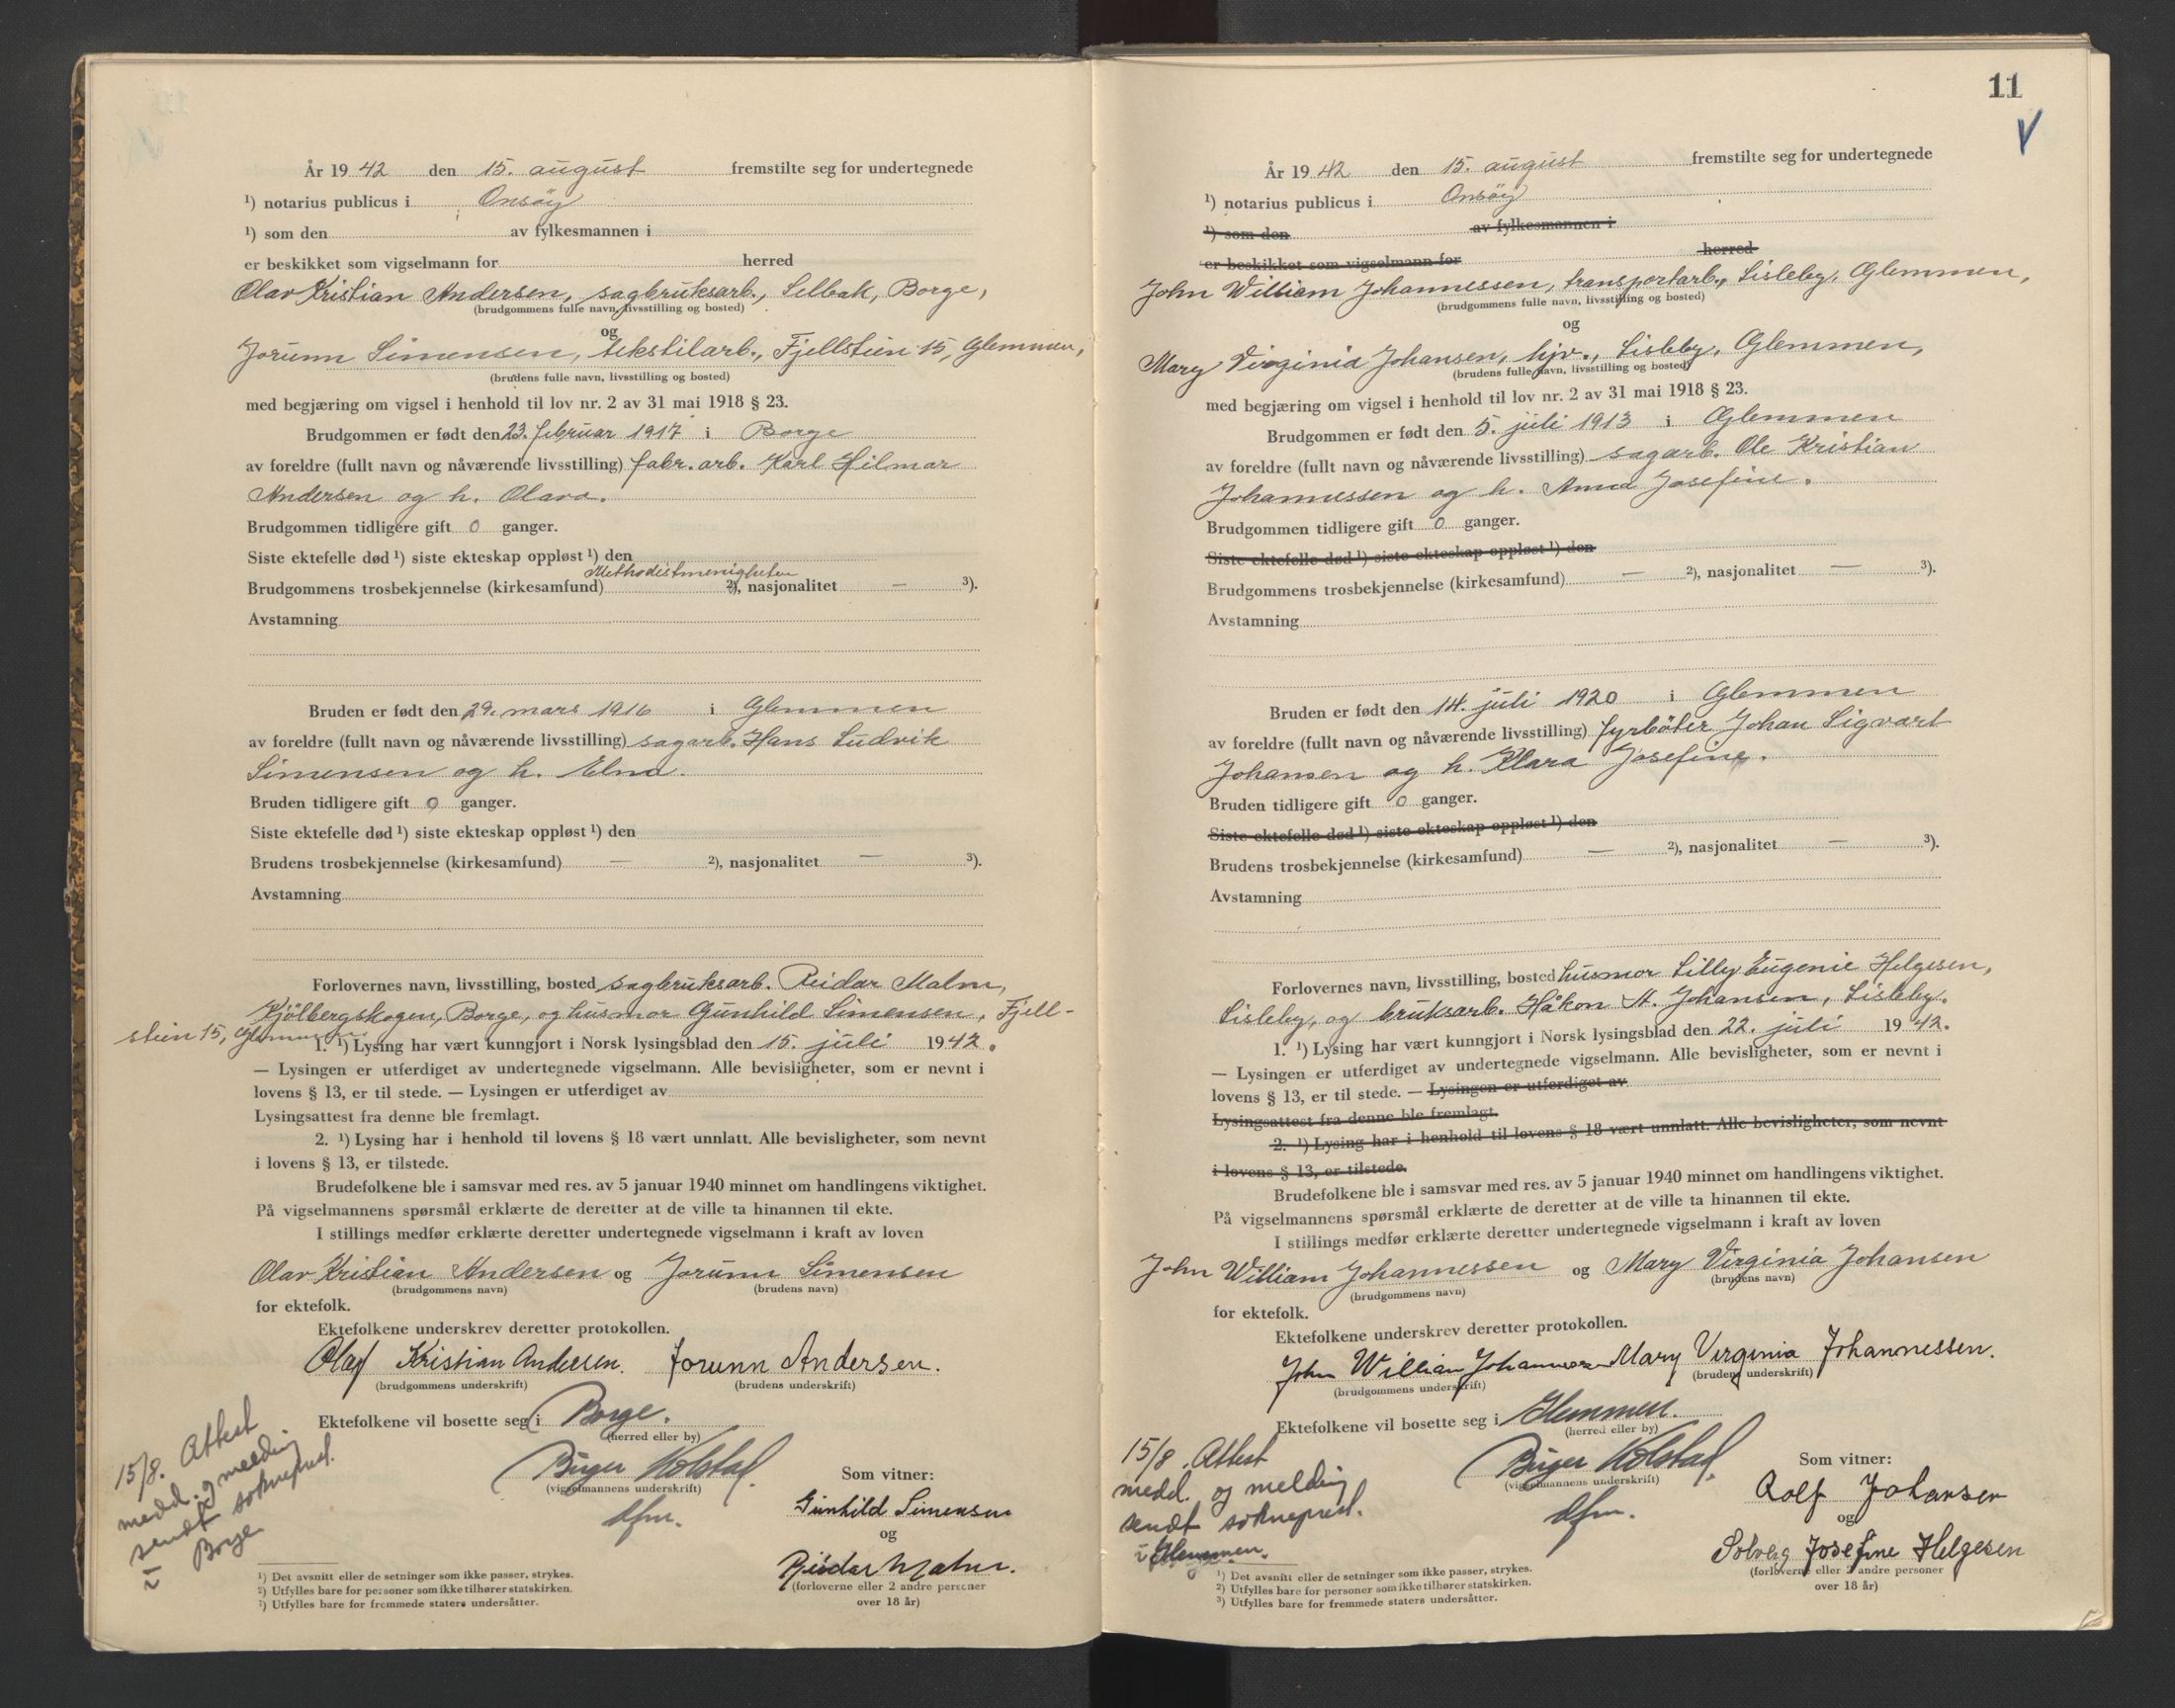 År 1942 den 15. august fremstilte seg for undertegnede
¹) notarius publicus i Onsöy
¹) som den av fylkesmannen i
er beskikket som vigselmann for herred
Olav Kristian Andersen, sagbruksarb., Selbak, Borge,
(brudgommens fulle navn, livsstilling og bosted)
og
Jorunn Simensen, tekstilarb., Fjellstien 15, Glemmen,
(brudens fulle navn, livsstilling og bosted)
med begjæring om vigsel i henhold til lov nr. 2 av 31 mai 1918 § 23.
Brudgommen er født den 23. februar 1917 i Borge
av foreldre (fullt navn og nåværende livsstilling) fabr. arb. Karl Hilmar
Andersen og h. Olava.
Brudgommen tidligere gift 0 ganger.
Siste ektefelle død ¹) siste ekteskap oppløst ¹) den
Methodistmenigheten
Brudgommens trosbekjennelse (kirkesamfund) ²), nasjonalitet — ³).
Avstamning
Bruden er født den 29. mars 1916 i Glemmen
av foreldre (fullt navn og nåværende livsstilling) sagarb. Hans Ludvik
Simensen og h. Elna.
Bruden tidligere gift 0 ganger.
Siste ektefelle død ¹) siste ekteskap oppløst ¹) den
Brudens trosbekjennelse (kirkesamfund) — ²), nasjonalitet — ³).
Avstamning
Forlovernes navn, livsstilling, bosted sagbruksarb. Reidar Malm,
Kjölbergskogen, Borge, og husmor Gunhild Simensen, Fjell-
stien 15, Glemmen.
1. ¹) Lysing har vært kunngjort i Norsk lysingsblad den 15. juli 1942.
— Lysingen er utferdiget av undertegnede vigselmann. Alle bevisligheter, som er nevnt i
lovens § 13, er til stede. — Lysingen er utferdiget av
Lysingsattest fra denne ble fremlagt.
2. ¹) Lysing har i henhold til lovens § 18 vært unnlatt. Alle bevisligheter, som nevnt
i lovens § 13, er tilstede.
Brudefolkene ble i samsvar med res. av 5 januar 1940 minnet om handlingens viktighet.
På vigselmannens spørsmål erklærte de deretter at de ville ta hinannen til ekte.
I stillings medfør erklærte deretter undertegnede vigselmann i kraft av loven
Olav Kristian Andersen og Jorunn Simensen
(brudgommens navn) (brudens navn)
for ektefolk.
Ektefolkene underskrev deretter protokollen.
Olaf Kristian Andersen. Jorunn Andersen.
(brudgommens underskrift) (brudens underskrift)
Ektefolkene vil bosette seg i Borge.
(herred eller by)
Birger Kolstad.
(vigselmannens underskrift)
dfm.
Som vitner:
Gunhild Simensen
og
Reidar Malm.
(forloverne eller 2 andre personer
over 18 år)
15/8. Attest
medd. og melding
sendt sokneprest.
i Borge
¹) Det avsnitt eller de setninger som ikke passer, strykes.
²) Utfylles bare for personer som ikke tilhører statskirken.
³) Utfylles bare for fremmede staters undersåtter.
11
År 1942 den 15. august fremstilte seg for undertegnede
¹) notarius publicus i Onsöy
¹) som den av fylkesmannen i
er beskikket som vigselmann for herred
John William Johannessen, transportarb., Lisleby, Glemmen,
(brudgommens fulle navn, livsstilling og bosted)
og
Mary Virginia Johansen, hjv., Lisleby, Glemmen,
(brudens fulle navn, livsstilling og bosted)
med begjæring om vigsel i henhold til lov nr. 2 av 31 mai 1918 § 23.
Brudgommen er født den 5. juli 1913 i Glemmen
av foreldre (fullt navn og nåværende livsstilling) sagarb. Ole Kristian
Johannessen og h. Anna Josefine.
Brudgommen tidligere gift 0 ganger.
Siste ektefelle død ¹) siste ekteskap oppløst ¹) den
Brudgommens trosbekjennelse (kirkesamfund) — ²), nasjonalitet — ³).
Avstamning
Bruden er født den 14. juli 1920 i Glemmen
av foreldre (fullt navn og nåværende livsstilling) fyrböter Johan Sigvart
Johansen og h. Klara Josefine.
Bruden tidligere gift 0 ganger.
Siste ektefelle død ¹) siste ekteskap oppløst ¹) den
Brudens trosbekjennelse (kirkesamfund) — ²), nasjonalitet — ³).
Avstamning
Forlovernes navn, livsstilling, bosted husmor Lilly Eugenie Helgesen,
Lisleby, og bruksarb. Håkon M. Johansen, Lisleby.
1. ¹) Lysing har vært kunngjort i Norsk lysingsblad den 22. juli 1942.
— Lysingen er utferdiget av undertegnede vigselmann. Alle bevisligheter, som er nevnt i
lovens § 13, er til stede. — Lysingen er utferdiget av
Lysingsattest fra denne ble fremlagt.
2. ¹) Lysing har i henhold til lovens § 18 vært unnlatt. Alle bevisligheter, som nevnt
i lovens § 13, er tilstede.
Brudefolkene ble i samsvar med res. av 5 januar 1940 minnet om handlingens viktighet.
På vigselmannens spørsmål erklærte de deretter at de ville ta hinannen til ekte.
I stillings medfør erklærte deretter undertegnede vigselmann i kraft av loven
John William Johannessen og Mary Virginia Johansen
(brudgommens navn) (brudens navn)
for ektefolk.
Ektefolkene underskrev deretter protokollen.
John William Johannessen Mary Virginia Johannessen.
(brudgommens underskrift) (brudens underskrift)
Ektefolkene vil bosette seg i Glemmen.
(herred eller by)
Birger Kolstad.
(vigselmannens underskrift)
dfm.
Som vitner:
Rolf Johansen
og
Solveig Josefine Helgesen
(forloverne eller 2 andre personer
over 18 år)
15/8. Attest
medd. og melding
sendt sokneprest.
i Glemmen.
¹) Det avsnitt eller de setninger som ikke passer, strykes.
²) Utfylles bare for personer som ikke tilhører statskirken.
³) Utfylles bare for fremmede staters undersåtter.